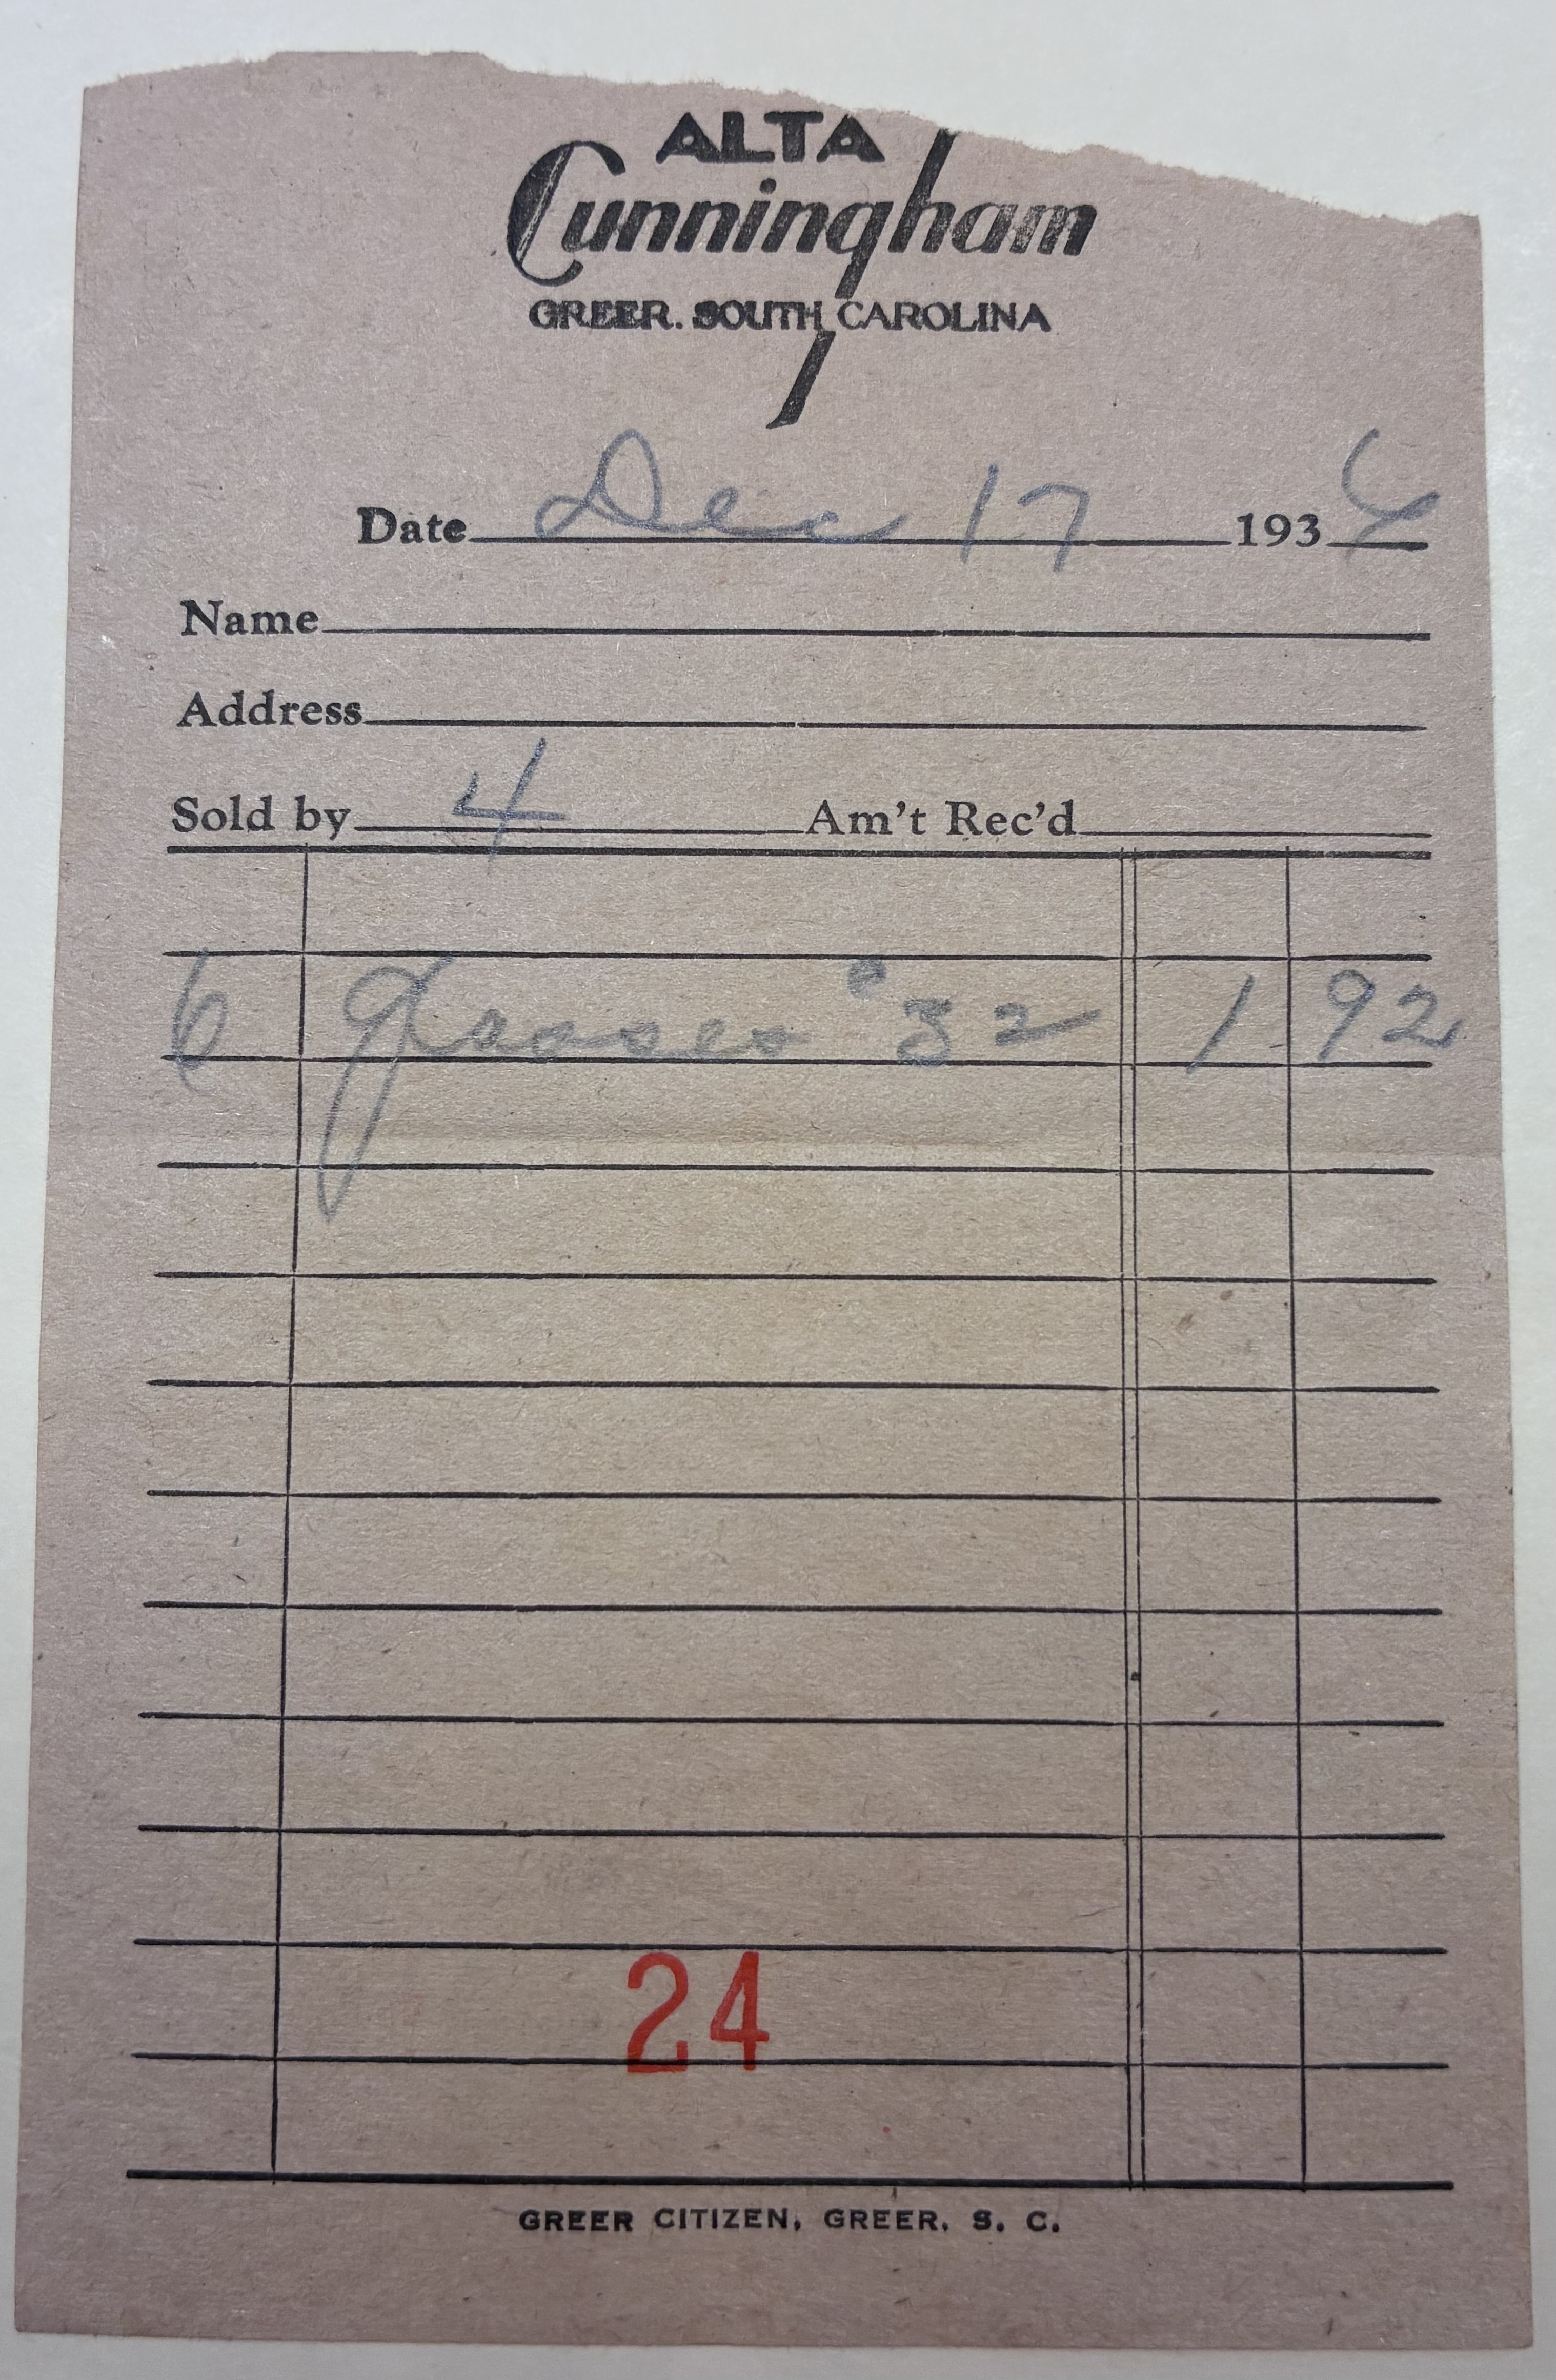 ALTA
Cunningham
GREER, SOUTH CAROLINA
Date Dec 17 1936
Name
Address
Sold by 4 Am't Rec'd
6 glasses @ 32 1 92
24
GREER CITIZEN, GREER, S. C.